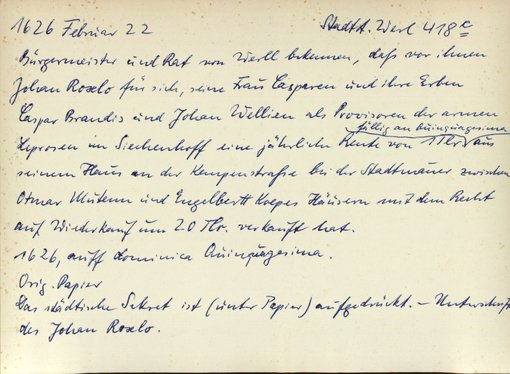 1626 Februar 22 Stadt A. Werl 418 c
Bürgermeister und Rat von Werll bekennen, daß vor ihnen
Johan Roxlo für sich, seine Frau Casparen und ihre Erben
Caspar Brandis und Johan Wellien als Provisoren der armen
fällig an Quinquagesima
Leprosen im Siechenhoff eine jährliche Rente von 1 Tlr aus
seinem Haus an der Kempenstraße bei der Stadtmauer zwischen
Otmar und Engelbertt Koepes Häusern mit dem Recht
auf Wiederkauf um 20 Tlr. verkauft hat.
1626, auff dominica Quinquagesima.
Orig. Papier
Das städtische Sekret ist (unter Papier) aufgedrückt. – Unterschrift
des Johan Roxlo.